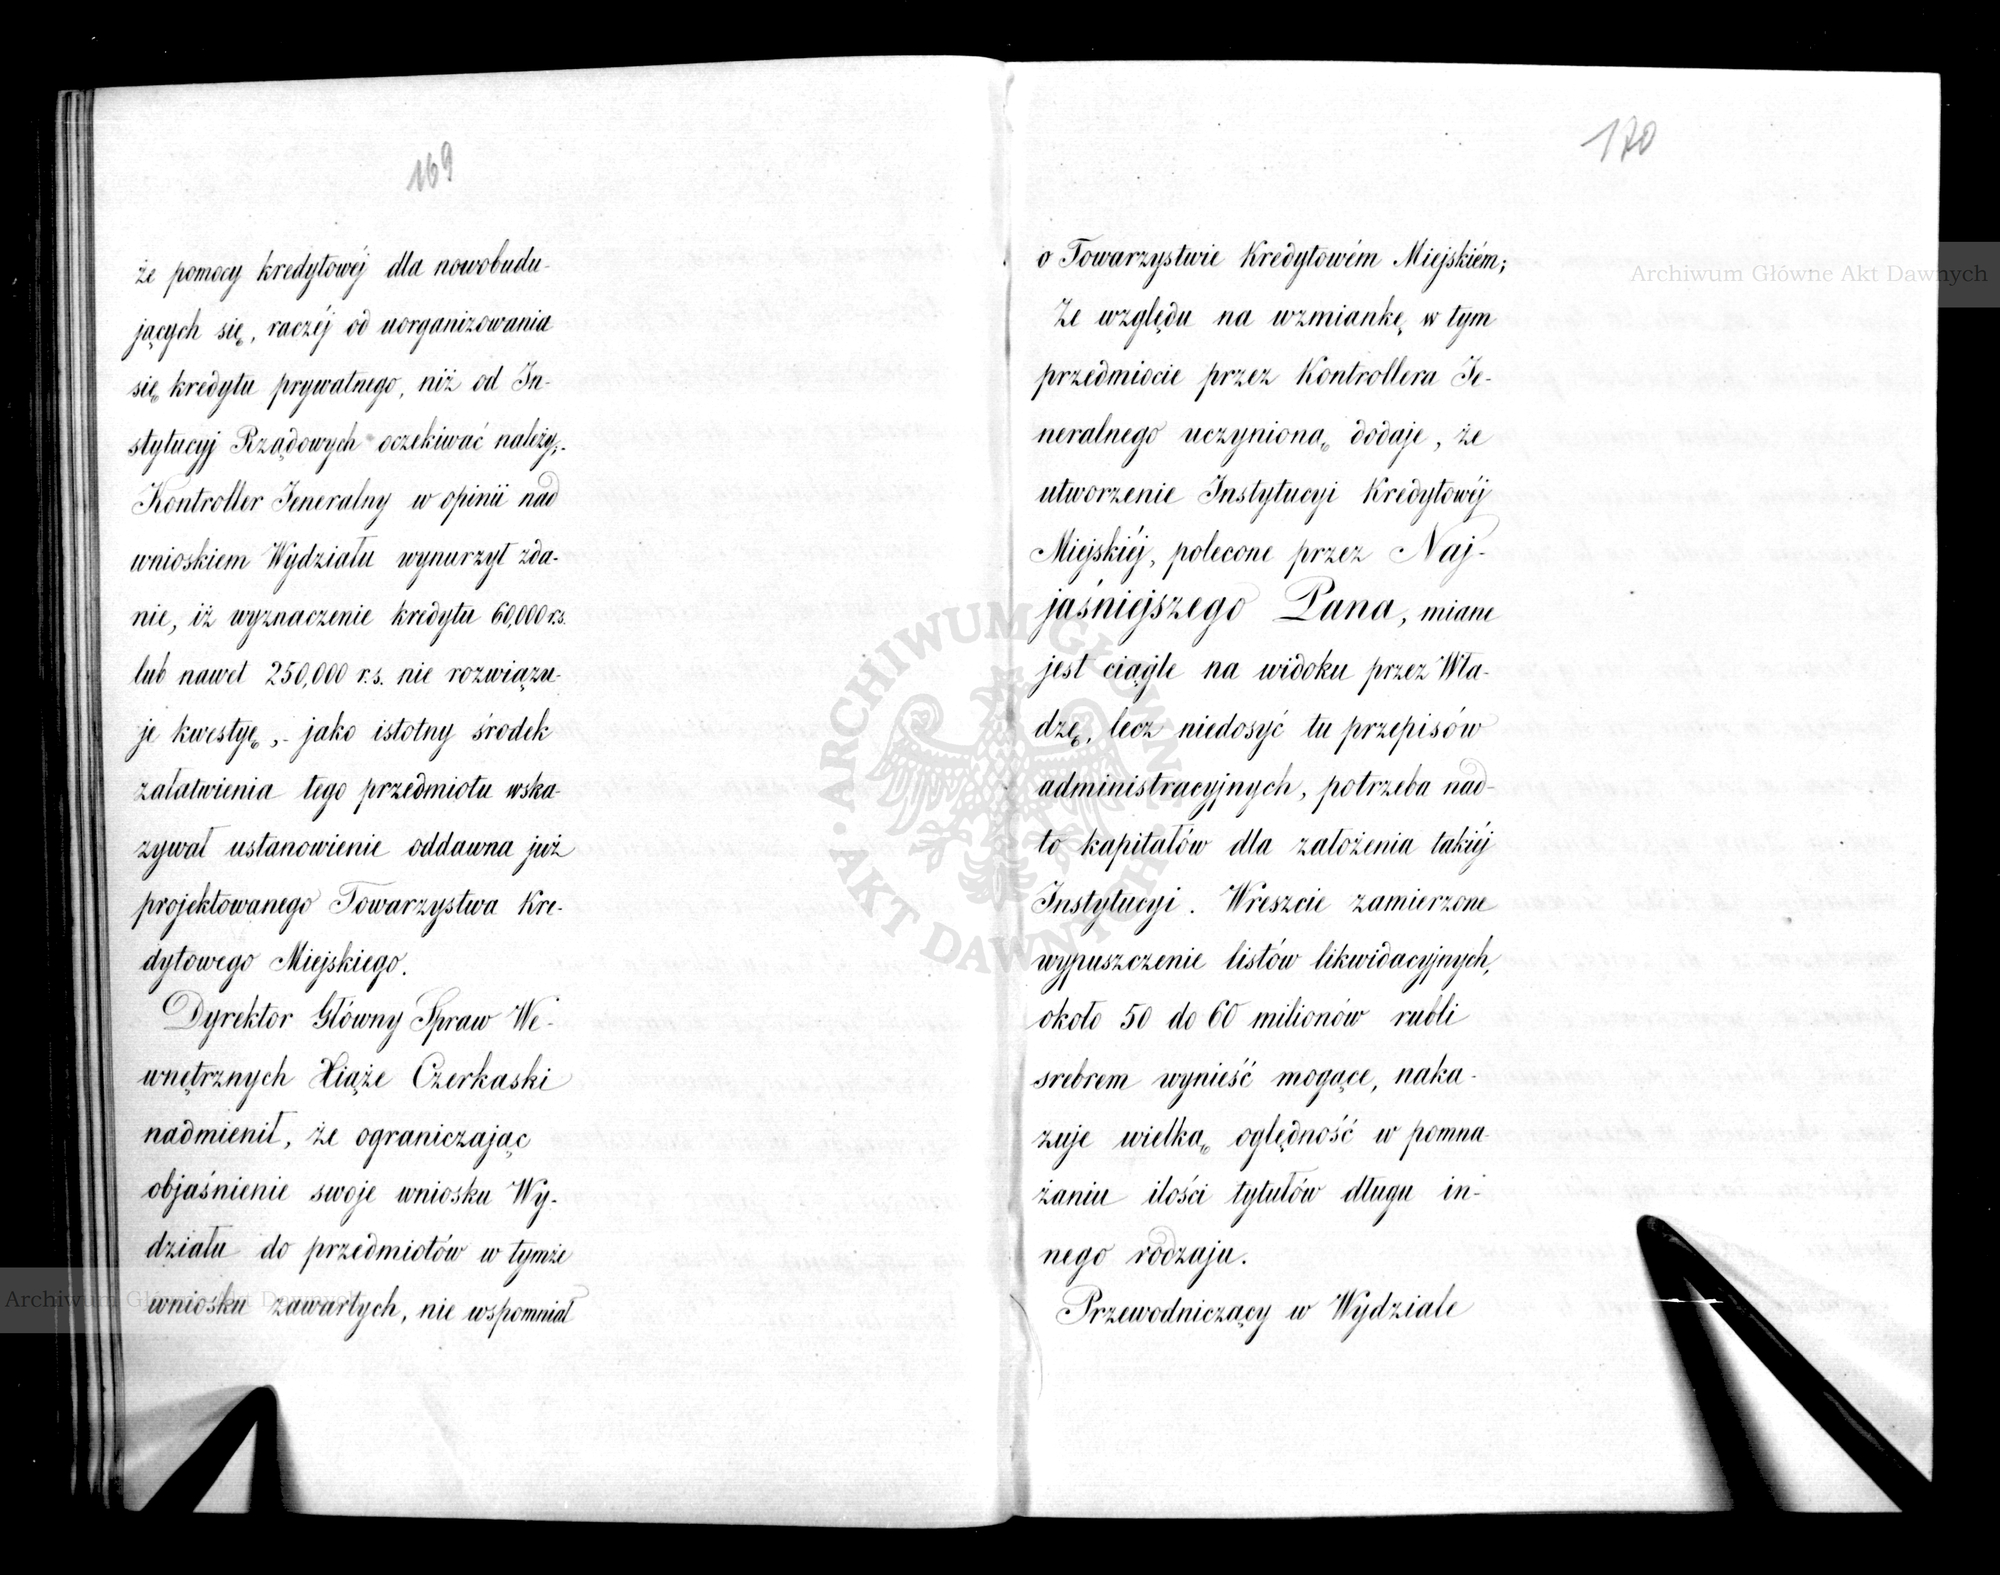 169
że pomocy kredytowéj dla nowobudu-
jących się, raczéj od uorganizowania
się kredytu prywatnego, niż od In-
stytucyj Rządowych oczekiwać należy,-
Kontroller Jeneralny w opinii nad
wnioskiem Wydziału wynurzył zda-
nie, iż wyznaczenie kredytu 60,000 r.s.
lub nawet 250,000 r.s. nie rozwiązu-
je kwestyę,- jako istotny środek
załatwienia tego przedmiotu wska-
zywał ustanowienie oddawna już
projektowanego Towarzystwa Kre-
dytowego Miejskiego.
Dyrektor Główny Spraw We-
wnętrznych Xiąże Czerkaski
nadmienił, że ograniczając
objaśnienie swoje wniosku Wy-
działu do przedmiotów w tymże
wniosku zawartych, nie wspomniał
170
o Towarzystwie Kredytowém Miejskiém;
Ze względu na wzmiankę w tym
przedmiocie przez Kontrollera Je-
neralnego uczynioną dodaje, że
utworzenie Instytucyi Kredytowéj
Miejskiéj, polecone przez Naj-
jaśniejszego Pana, miane
jest ciągle na widoku przez Wła-
dzę, lecz niedosyć tu przepisów
administracyjnych, potrzeba nad-
to kapitałów dla założenia takiéj
Instytucyi. Wreszcie zamierzone
wypuszczenie listów likwidacyjnych,
około 50 do 60 milionów rubli
srebrem wynieść mogące, naka-
zuje wielką oględność w pomna-
żaniu ilości tytułów długu in-
nego rodzaju.
Przewodniczący w Wydziale
Archiwum Główne Akt Dawnych
ARCHIWUM GŁÓWNE AKT DAWNYCH
Archiwum Główne Akt Dawnych